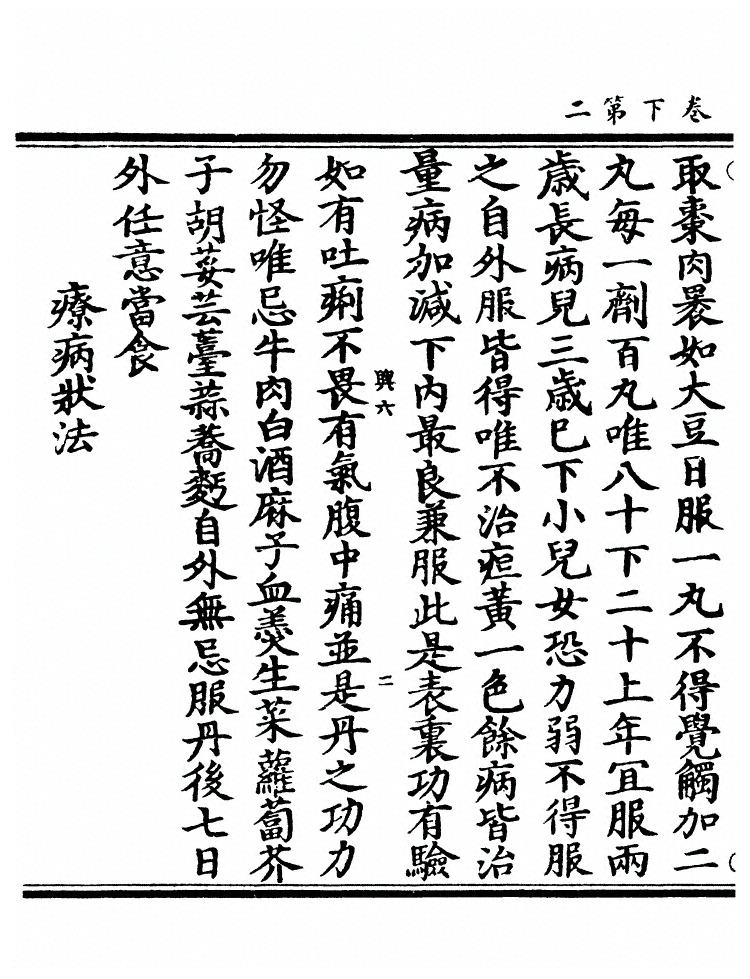 卷下第二
取棗肉㬥如大豆日服一丸不得覺觸加二
丸每一劑百丸唯八十下二十上年宜服兩
歲長病兒三歲已下小兒女恐力弱不得服
之自外服皆得唯不治疸黃一色餘病皆治
量病加減下內最良兼服此是表裏功有驗
興六
二
如有吐痢不畏有氣腹中痛並是丹之功力
勿怪唯忌牛肉白酒麻子血羹生菜蘿蔔芥
子胡荽芸薹蒜蕎麪自外無忌服丹後七日
外任意當食
療病狀法